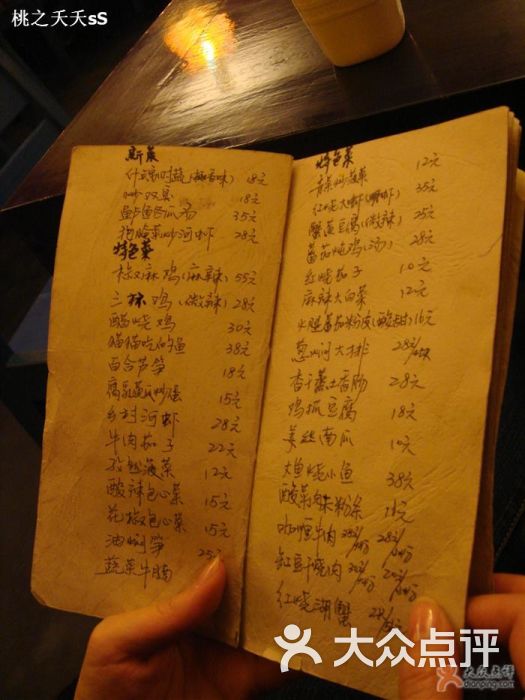 桃之夭夭sS
新菜
什锦时蔬(椒香味) 18元
炒双菇 18元
鲈鱼冬瓜汤 35元
炒河虾 28元
特色菜
椒麻鸡(麻辣) 55元
三杯鸡(微辣) 28元
醋烧鸡 30元
猫猫吃的鱼 38元
百合芦笋 18元
腐乳炒蛋 15元
乡村河虾 28元
牛肉茄子 22元
菠菜 12元
酸辣包心菜 15元
花椒包心菜 15元
油焖笋 25元
蔬菜牛腩
特色菜
12元
红烧大虾 35元
蟹黄豆腐(微辣) 25元
番茄炖鸡(汤) 28元
红烧茄子 10元
麻辣大白菜 12元
火腿番茄粉皮(酸甜) 16元
葱焖大排 28元
香干蒸土香肠 28元
鸡抓豆腐 18元
姜丝南瓜 10元
大鱼烧小鱼 38元
酸菜肉末粉条 18元
咖喱牛肉 28元
豇豆干烧肉
红烧湖蟹 28
大众点评
大众点评
dianping.com